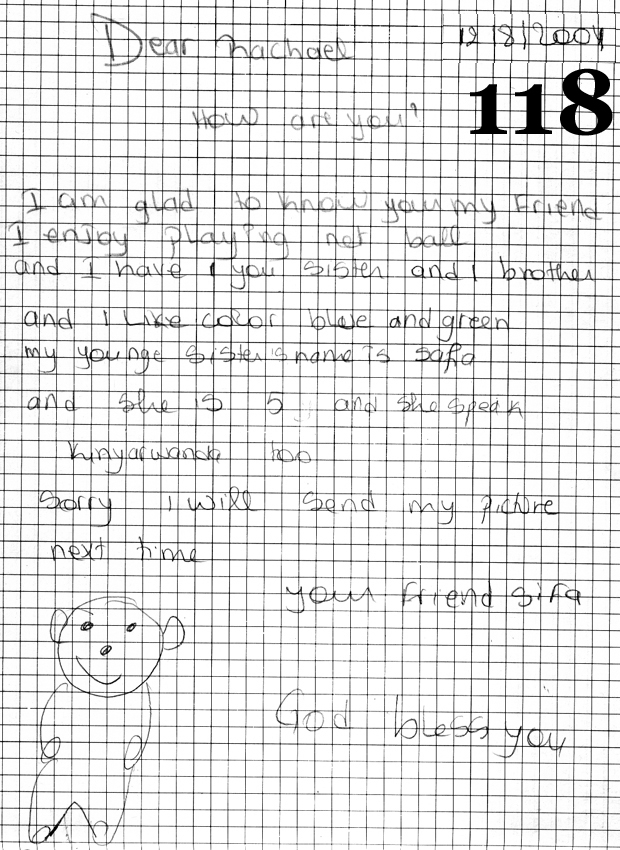 Dear Rachael 12/8/2004
118
How are you?
I am glad to know your my Friend
I enjoy playing net ball
and I have 1 you sister and 1 brother
and I Like color blue and green
my younge sister's name is safia
and she is 5 and she speak
Kinyarwanda too
Sorry I will send my picture
next time
your friend sifa
God bless you